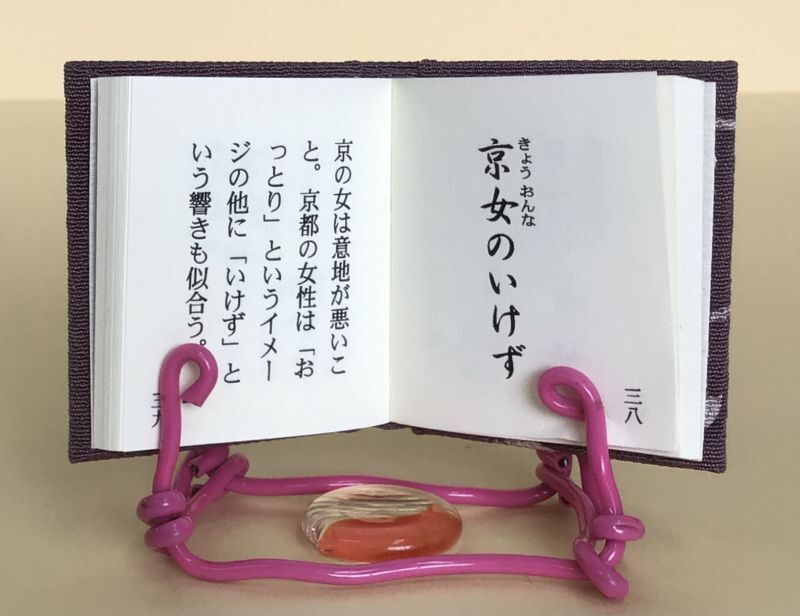 京女のいけず
きょう おんな
三八
京の女は意地が悪いこ
と。京都の女性は「お
っとり」というイメー
ジの他に「いけず」と
いう響きも似合う。